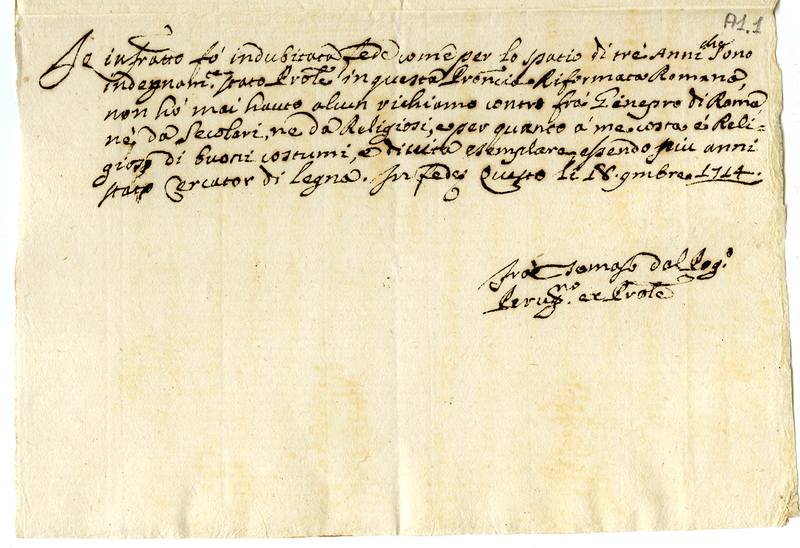 A1.1
Io infratto fò indubitata fede come per lo spatio di tré Anni che sono
indegnam.te stato Prōle in questa Prōncia Riformata Romana,
non hó mai hauto alcun richiamo contro frá Ginepro di Roma
né da Secolari, né da Religiosi, e per quanto á me costa é Reli-
gioso di buoni costumi, é di uita esemplare, essendo piu anni
stato Cercator di legna. In fede Questo lì 18. 9mbre. 1714.
frà Tomaso dal
ex Prōle